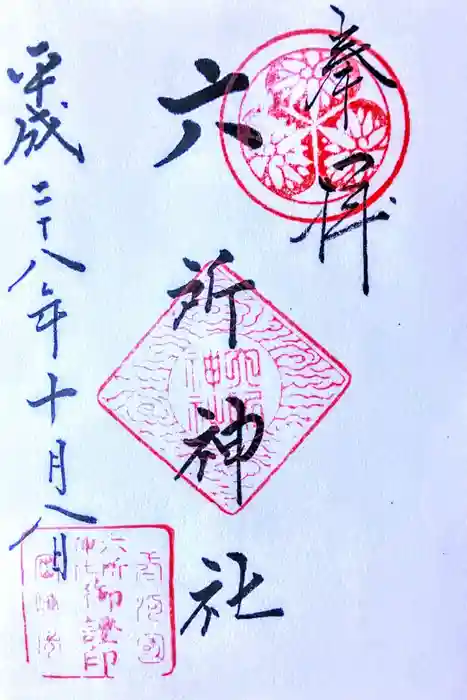 奉拝
六所神社
六所
神社
平成二十八年十月八日
六所
御證印